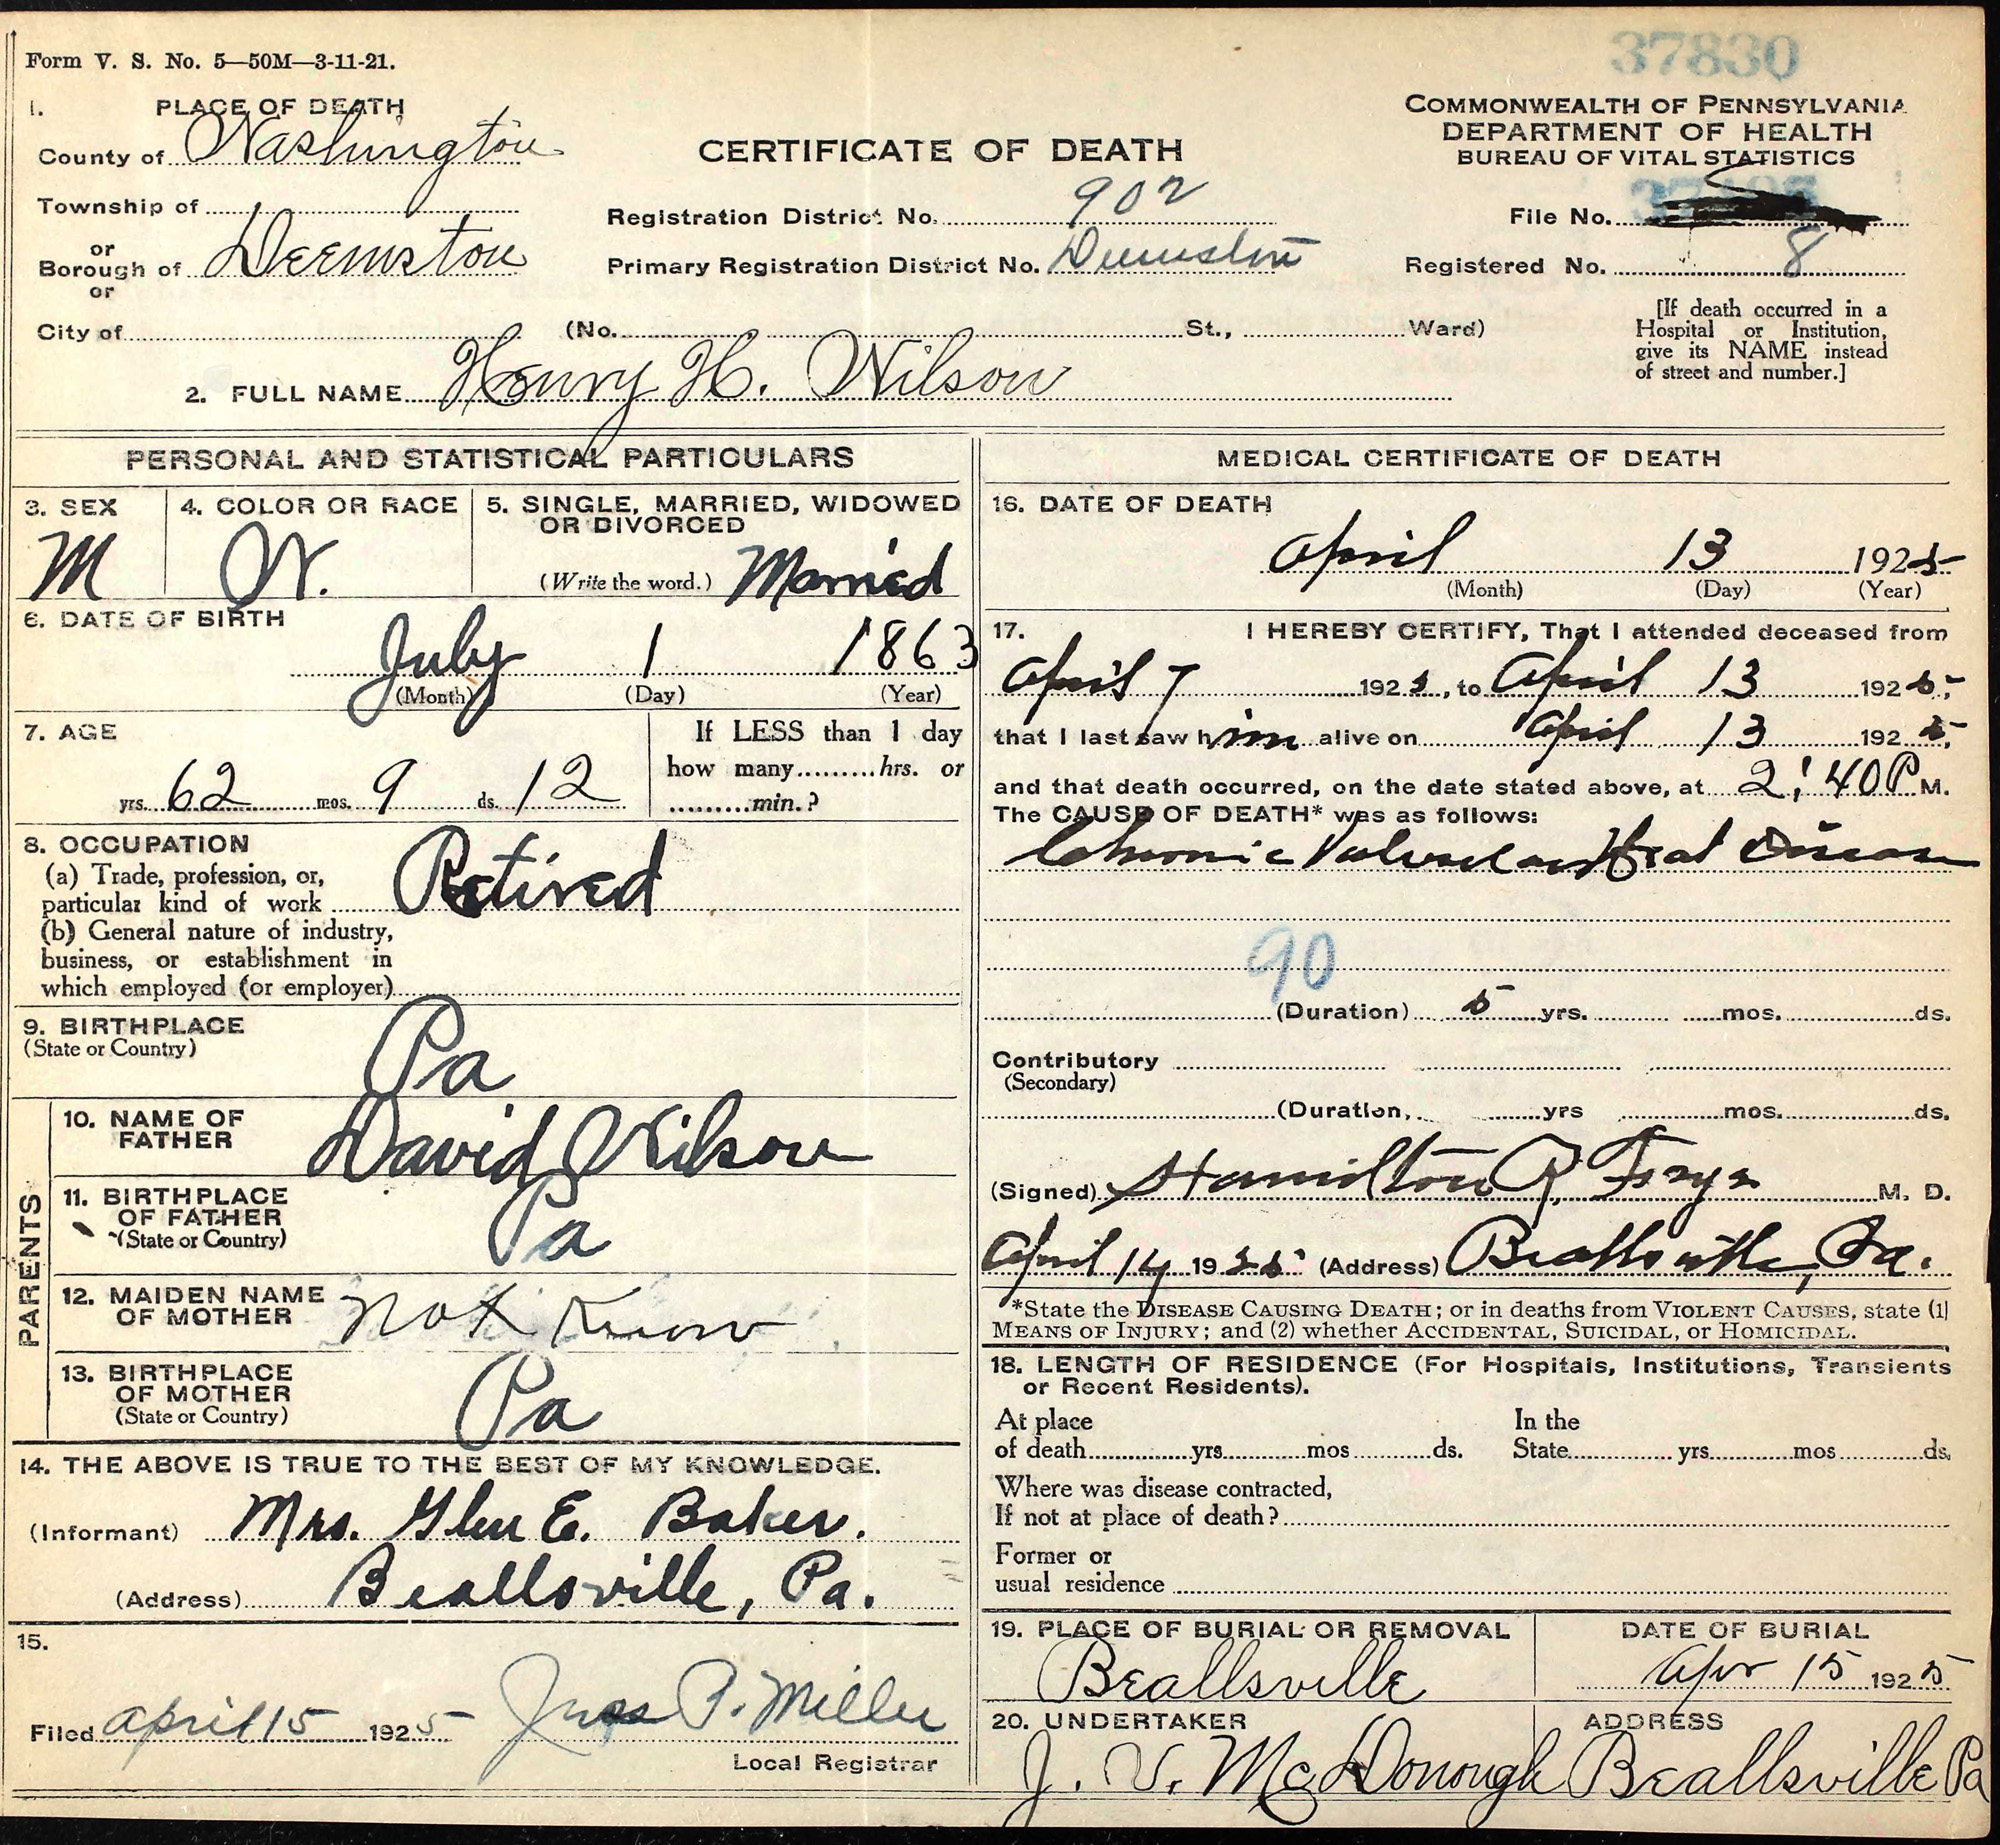 37830
Form V. S. No. 5—50M—3-11-21.
COMMONWEALTH OF PENNSYLVANIA
DEPARTMENT OF HEALTH
BUREAU OF VITAL STATISTICS
CERTIFICATE OF DEATH
1. PLACE OF DEATH
County of Washington
Township of
or
Borough of Deemston
or
City of (No. St., Ward)
Registration District No. 902
Primary Registration District No. Deemston
File No.
Registered No. 8
[If death occurred in a
Hospital or Institution,
give its NAME instead
of street and number.]
2. FULL NAME Henry H. Wilson
PERSONAL AND STATISTICAL PARTICULARS
3. SEX
M
4. COLOR OR RACE
W.
5. SINGLE, MARRIED, WIDOWED
OR DIVORCED
(Write the word.) Married
6. DATE OF BIRTH
July 1 1863
(Month) (Day) (Year)
7. AGE
yrs. 62 mos. 9 ds. 12
If LESS than 1 day
how many.........hrs. or
.........min.?
8. OCCUPATION
(a) Trade, profession, or,
particular kind of work Retired
(b) General nature of industry,
business, or establishment in
which employed (or employer)
9. BIRTHPLACE
(State or Country)
Pa
PARENTS
10. NAME OF
FATHER
David Wilson
11. BIRTHPLACE
OF FATHER
(State or Country)
Pa
12. MAIDEN NAME
OF MOTHER
not Know
13. BIRTHPLACE
OF MOTHER
(State or Country)
Pa
14. THE ABOVE IS TRUE TO THE BEST OF MY KNOWLEDGE.
(Informant) Mrs. Glen E. Baker.
(Address) Beallsville, Pa.
15.
Filed April 15 1925 P. Miller
Local Registrar
MEDICAL CERTIFICATE OF DEATH
16. DATE OF DEATH
April 13 1925
(Month) (Day) (Year)
17. I HEREBY CERTIFY, That I attended deceased from
April 7 1925, to April 13 1925,
that I last saw him alive on April 13 1925,
and that death occurred, on the date stated above, at 2:40 P M.
The CAUSE OF DEATH* was as follows:
Chronic Valvular Heart Disease
90
(Duration) 5 yrs. mos. ds.
Contributory
(Secondary)
(Duration, yrs mos. ds.
(Signed) Hamilton R. Frye M. D.
April 14 1925 (Address) Beallsville, Pa.
*State the DISEASE CAUSING DEATH; or in deaths from VIOLENT CAUSES, state (1)
MEANS OF INJURY; and (2) whether ACCIDENTAL, SUICIDAL, or HOMICIDAL.
18. LENGTH OF RESIDENCE (For Hospitals, Institutions, Transients
or Recent Residents).
At place In the
of death yrs. mos ds. State yrs. mos ds.
Where was disease contracted,
If not at place of death?
Former or
usual residence
19. PLACE OF BURIAL OR REMOVAL
Beallsville
DATE OF BURIAL
Apr 15 1925
20. UNDERTAKER
J. V. McDonough
ADDRESS
Beallsville Pa